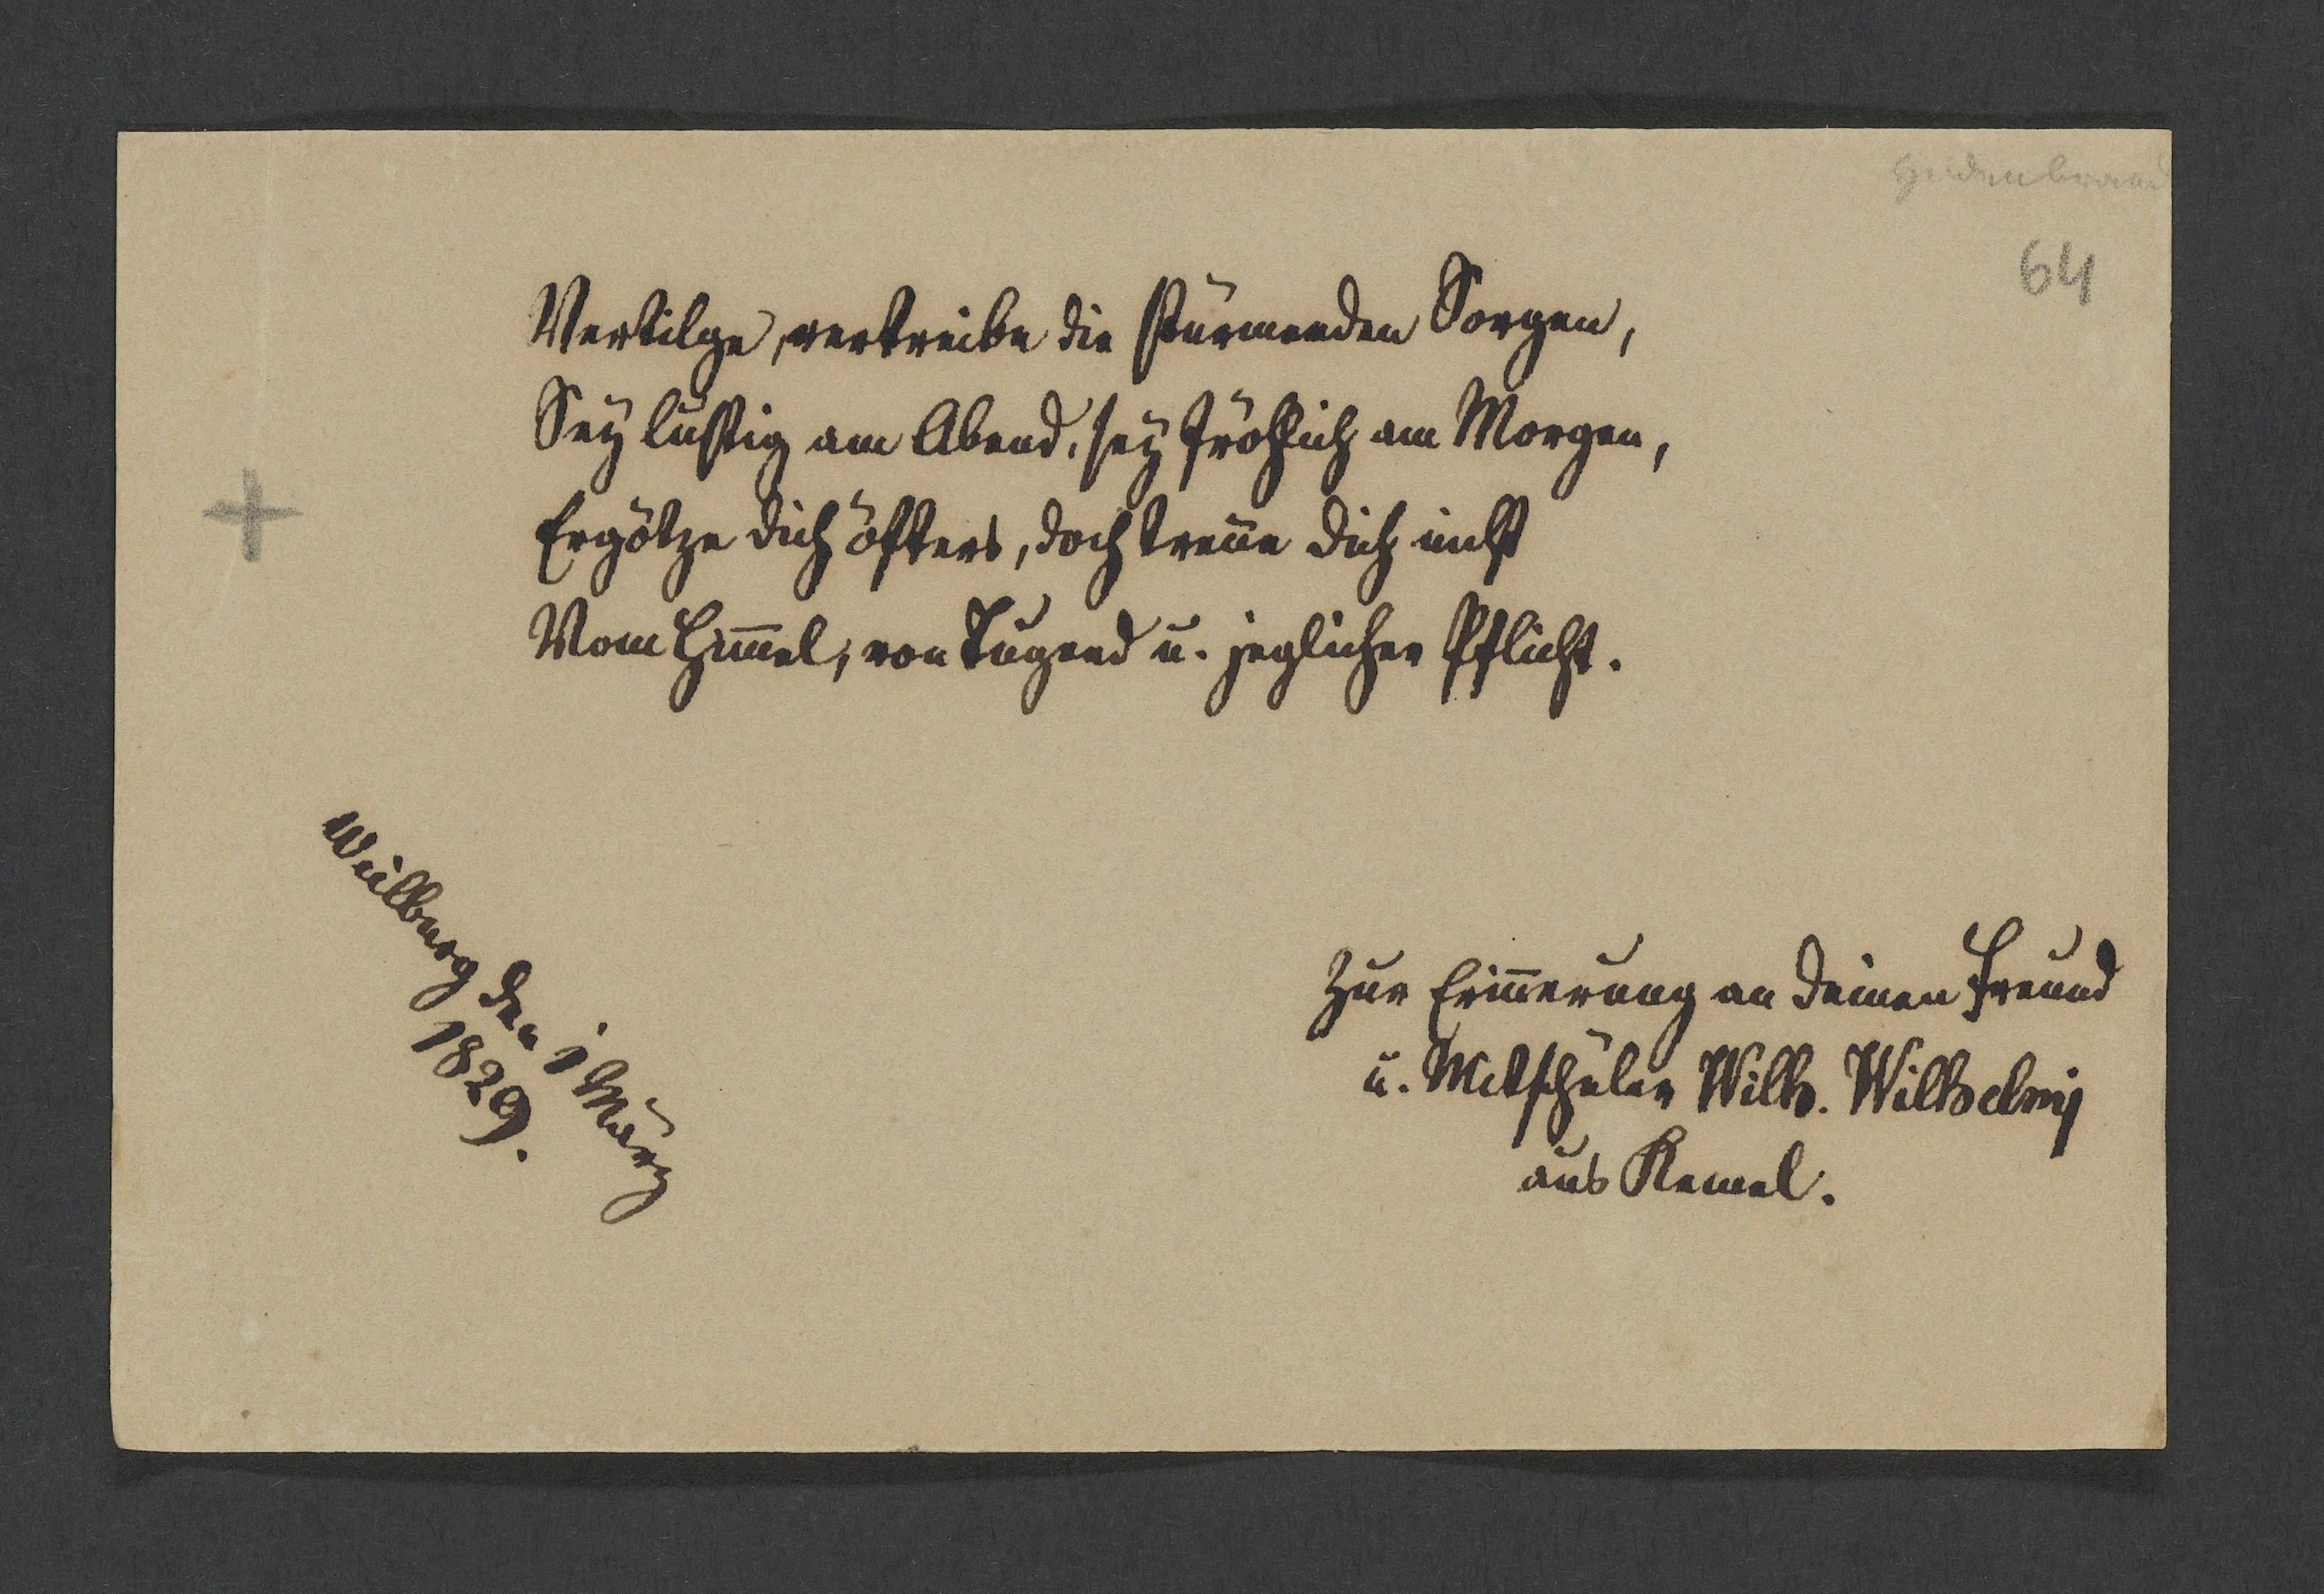 64
Vertilge, vertreibe die stürmenden Sorgen,
Sey lustig am Abend, sey fröhlich am Morgen,
Ergötze dich öfters, doch treñe dich nicht
Vom Him̅el, von Tugend u. jeglicher Pflicht.
+
Weilburg den 1 März
1829.
Zur Erin̅erung an deinen Freund
u. Mitschüler Wilh. Wilhelmj
aus Kemel.